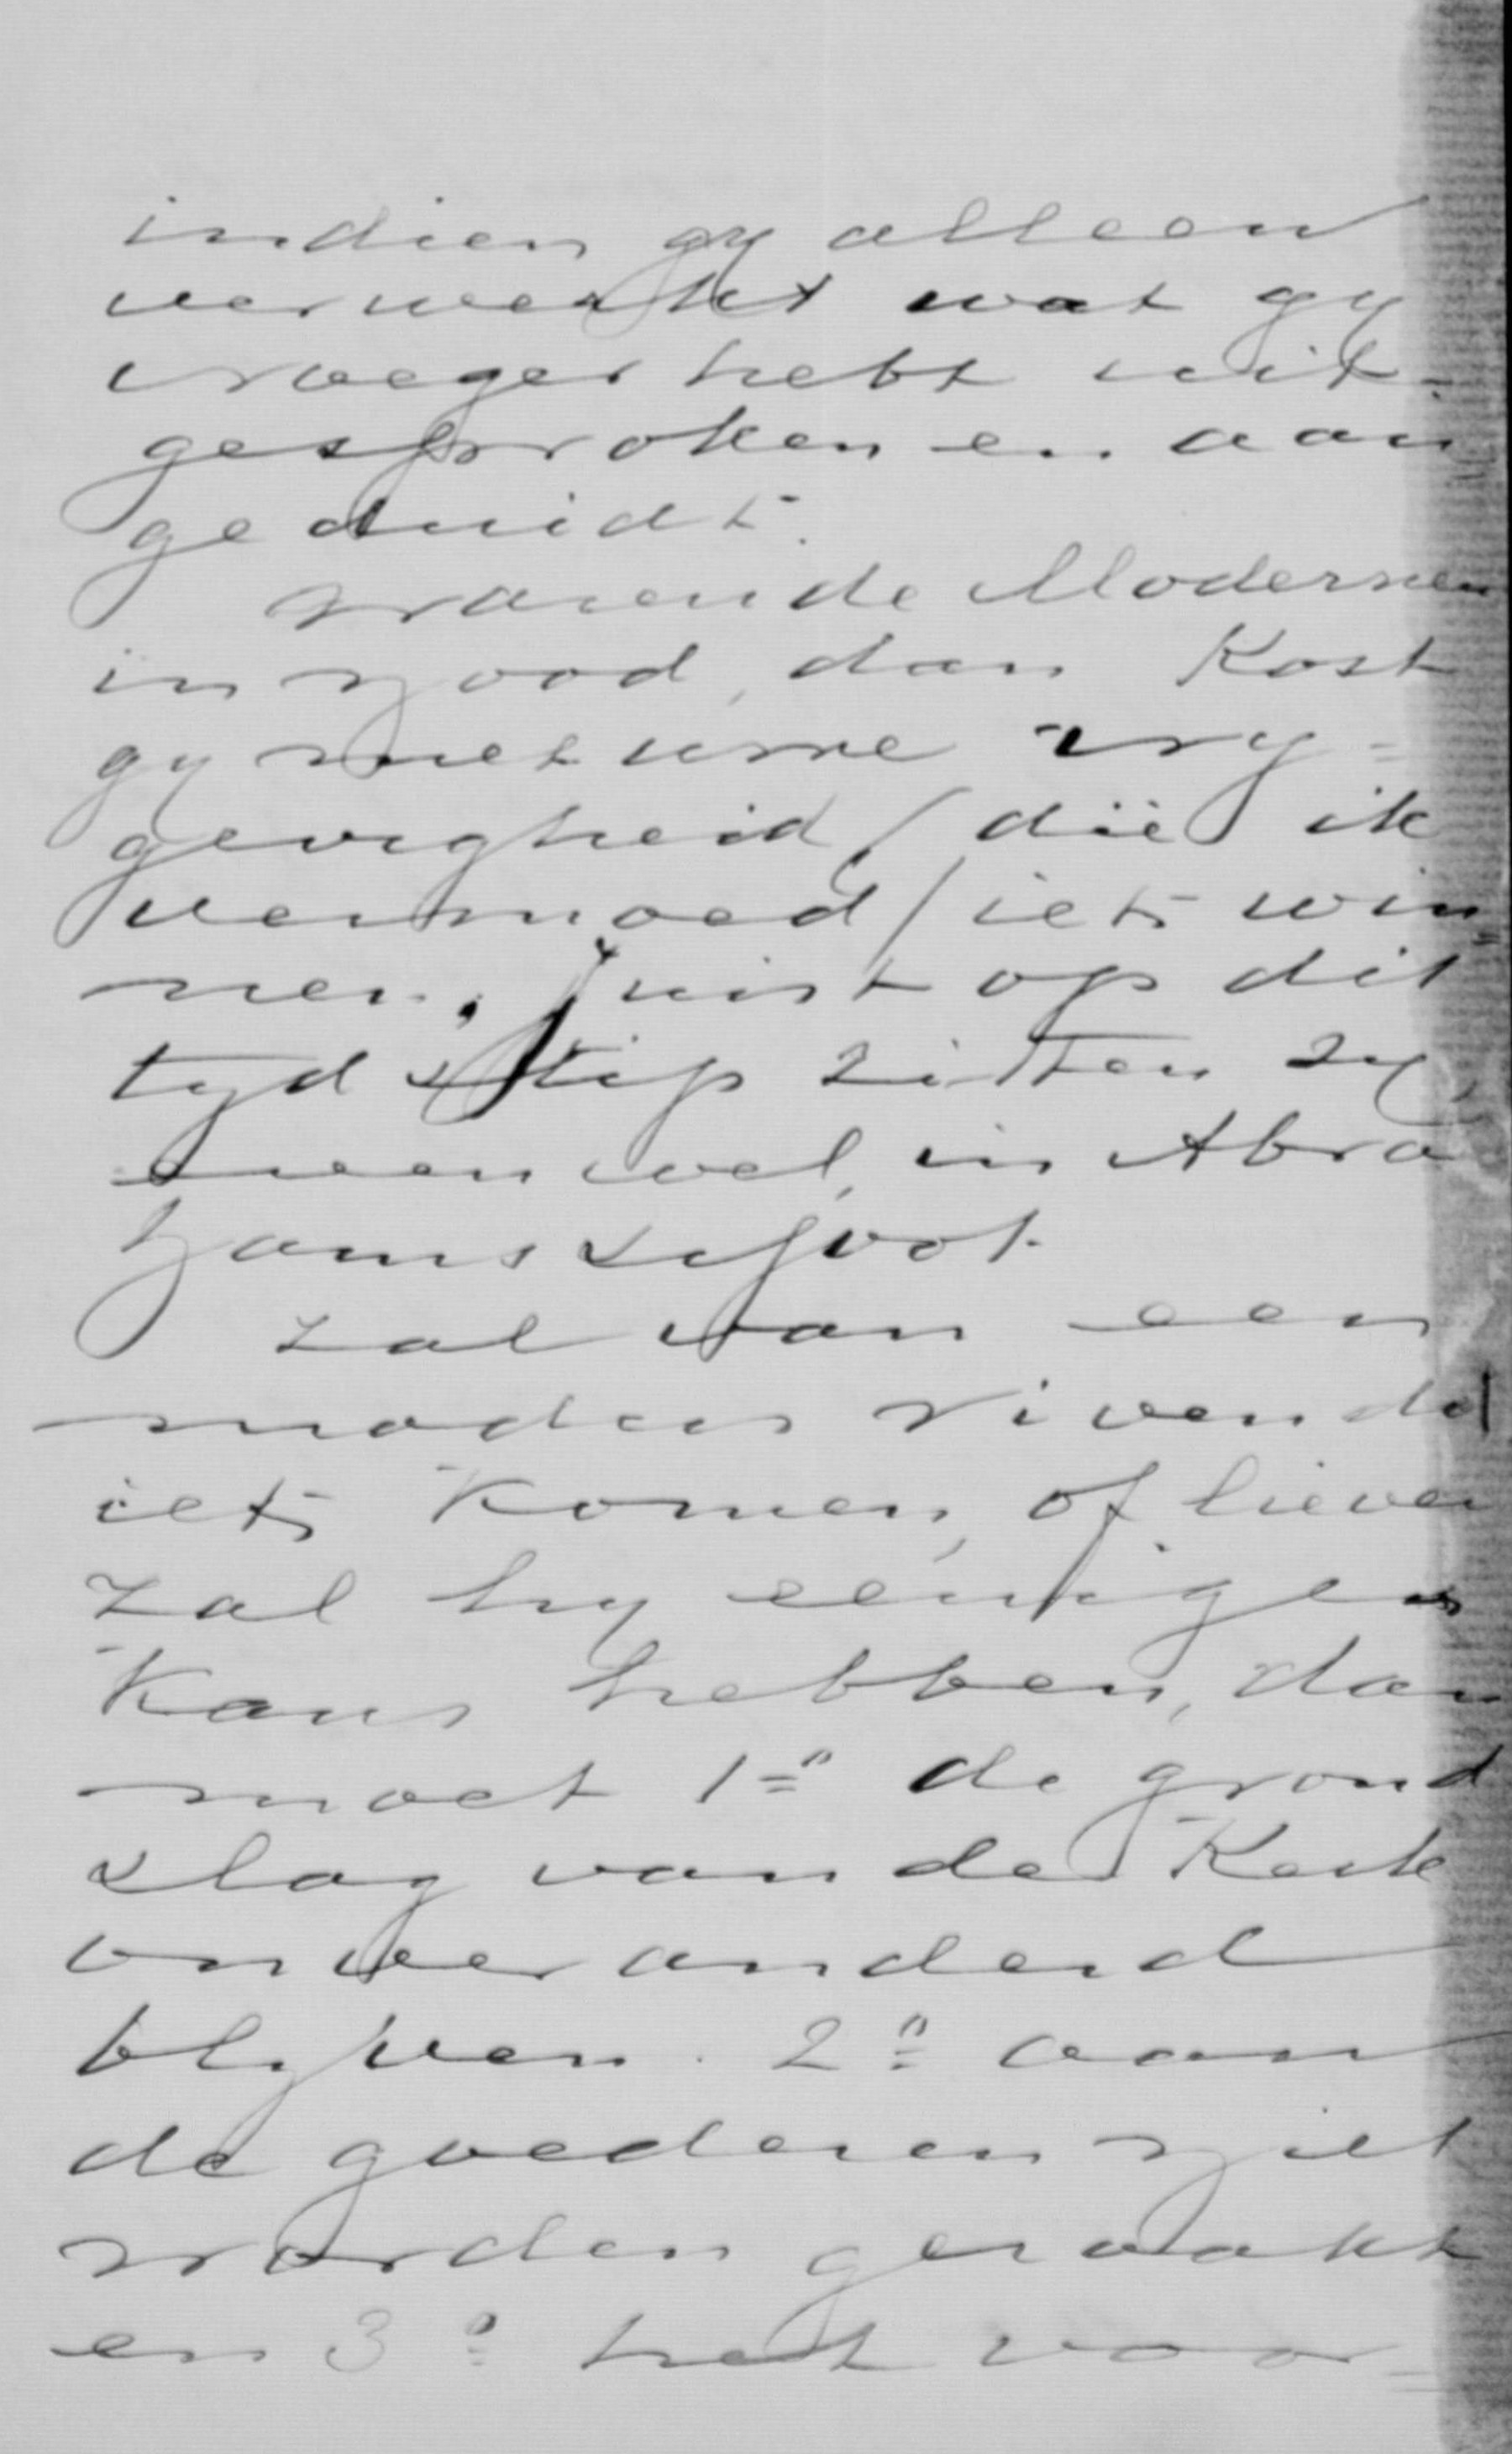 indien gy alleen
verwerkt wat gy
vroeger hebt uit-
gesproken en aan
geduidt.
Waren de Modernen
in nood, dan kost
gy met uwe vry=
gevigheid / die ik
vermoed / iets win=
nen. Juist op dit
tydstip zitten zy,
meen wel, in Abra
hams schoot.
Zal van een
modus vivendi
iets komen, of liever
zal hy eenigen
kans hebben, dan
moet 1=° de grond
slag van de Kerk
onveranderd
blyven. 2=° aan
de goederen niet
worden geraakt
en 3=° het voor=